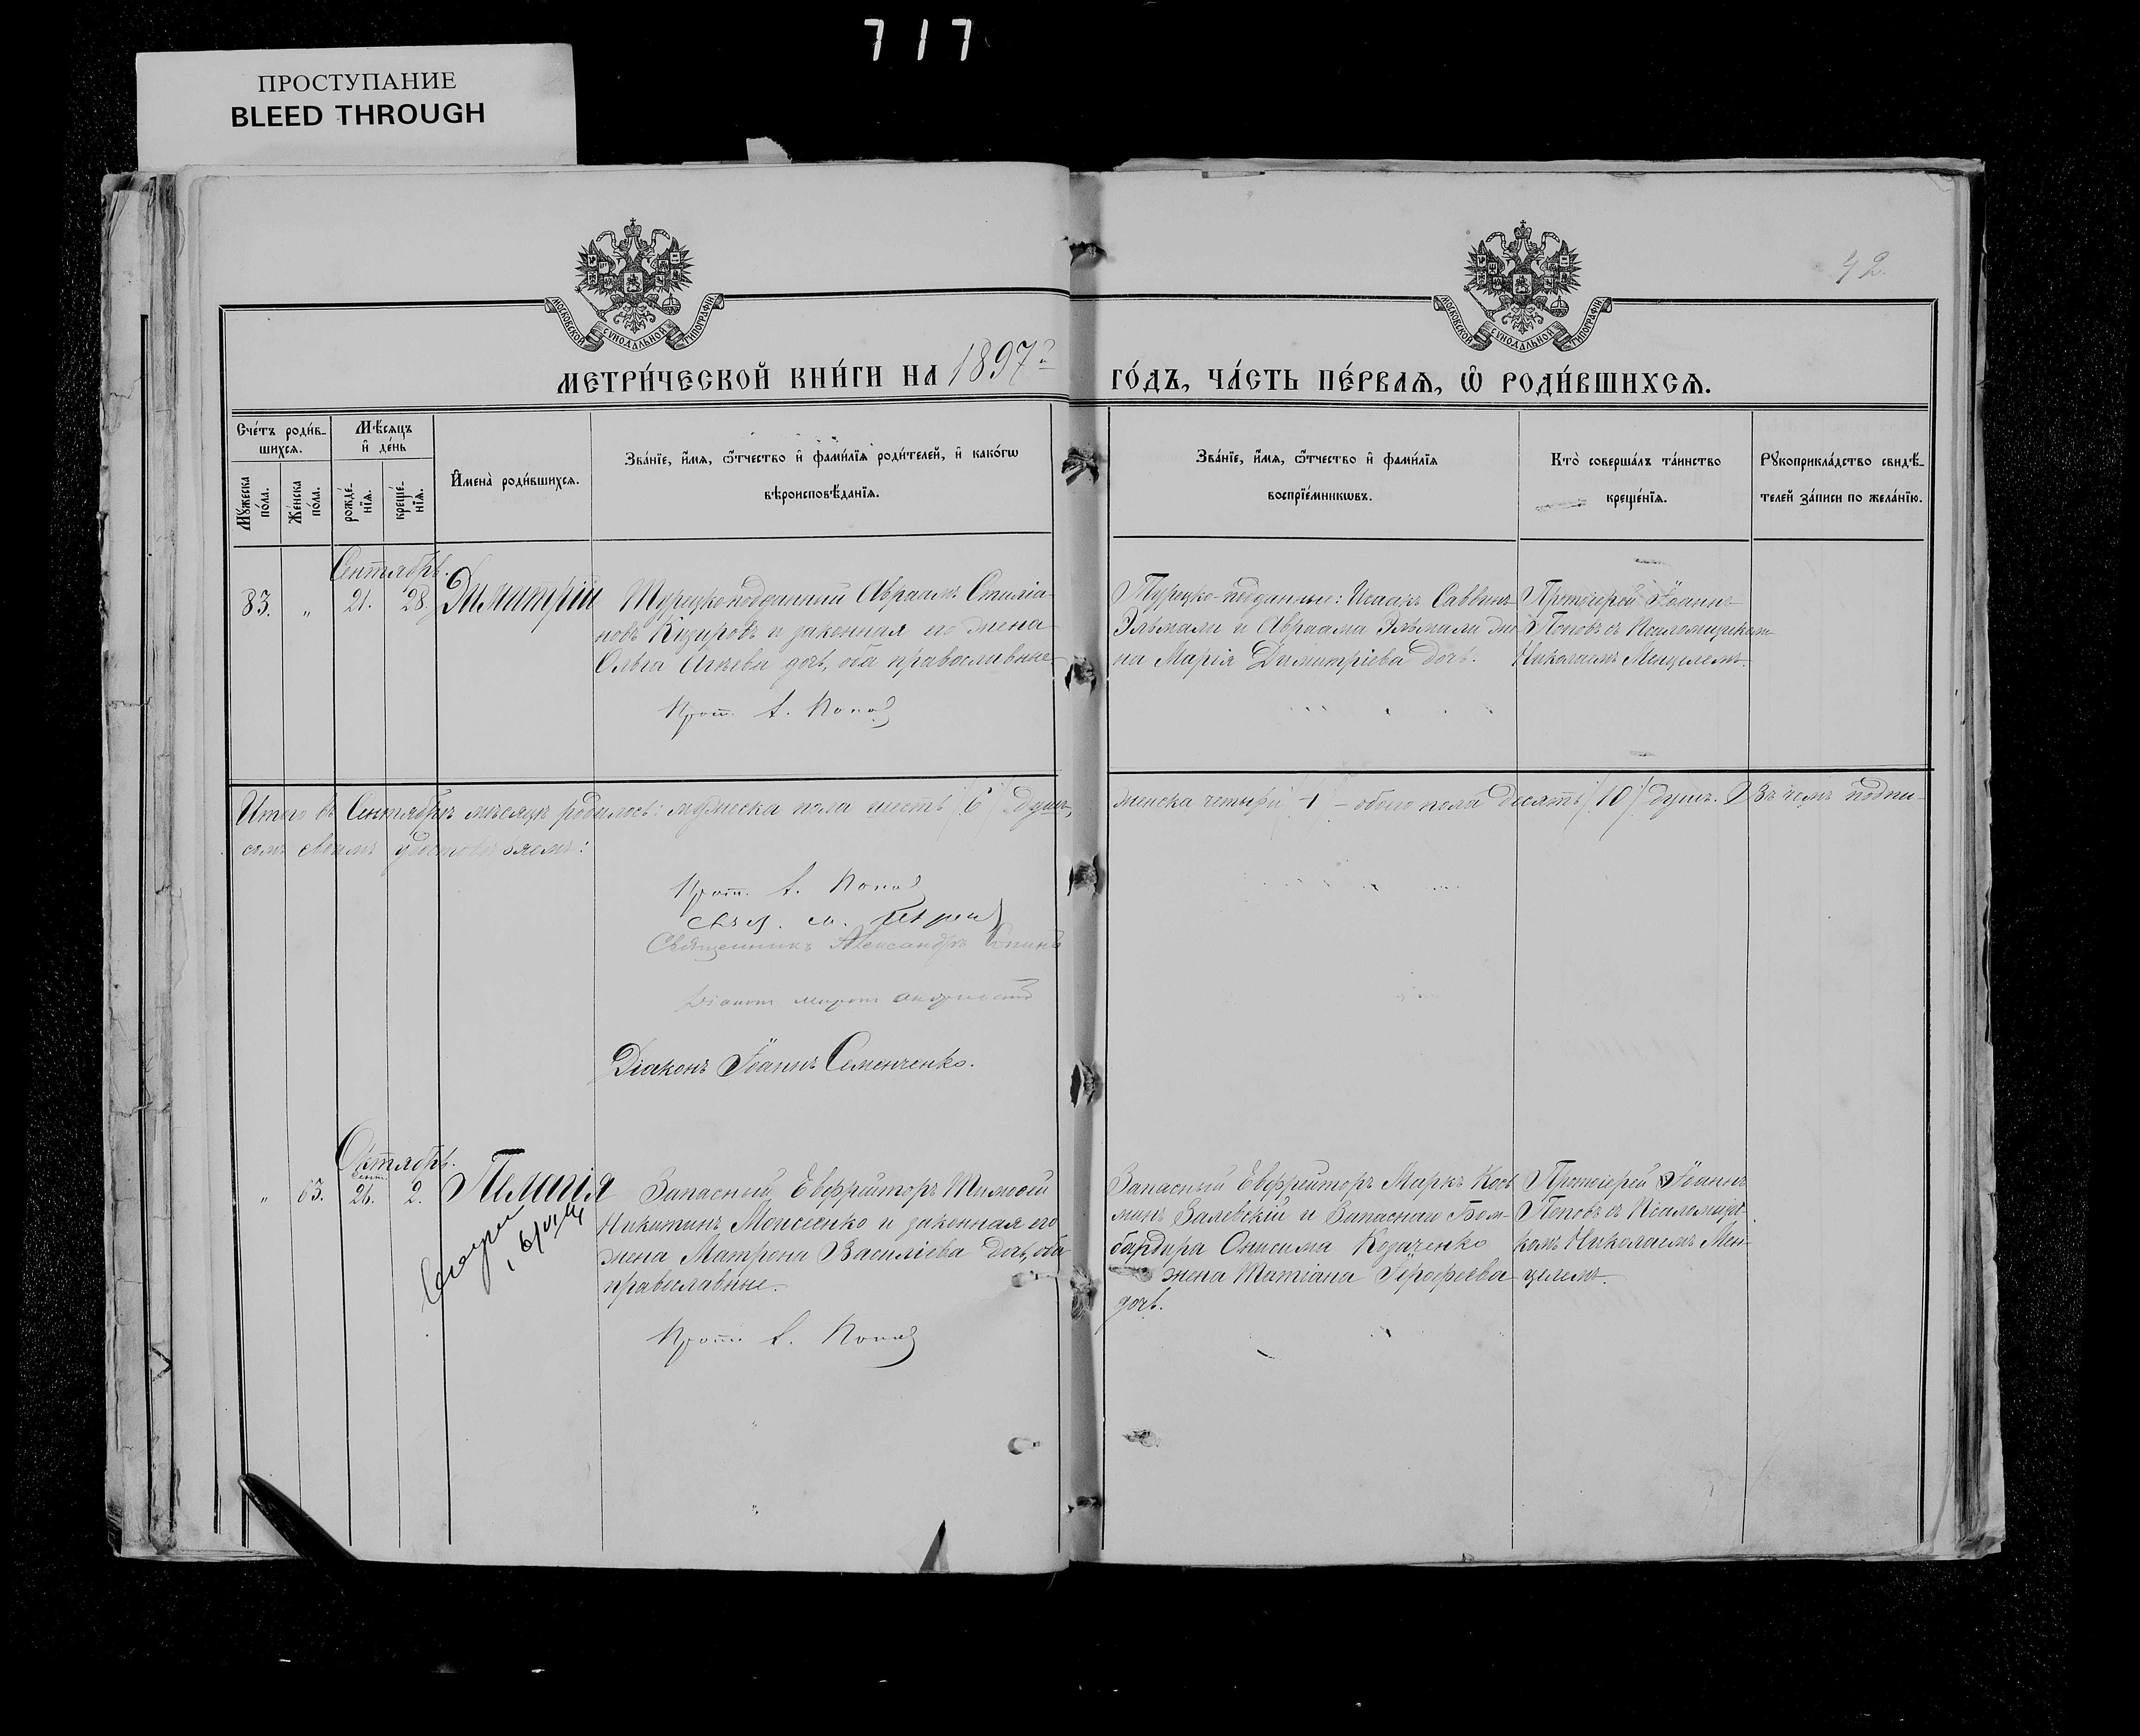 717
ПРОСТУПАНИЕ
BLEED THROUGH
42.
МОСКОВСКОЙ СѴНОДАЛЬНОЙ ТИПОГРАФІИ
МОСКОВСКОЙ СѴНОДАЛЬНОЙ ТИПОГРАФІИ
МЕТРИ́ЧЕСКОЙ КНИ́ГИ НА 1897 ГО́ДЪ, ЧА́СТЬ ПЕ́РВАѦ, Ѡ РОДИ́ВШИХСѦ.
Сче́тъ роди́в-
шихсѧ.
Мѣ́сѧцъ
и де́нь
Мꙋ́жеска
по́ла.
Же́нска
по́ла.
рожде́-
нїѧ.
креще́-
нїѧ.
И҆мена̀ роди́вшихсѧ.
Зва́нїе, и҆́мѧ, ѻ҆́тчество и҆ фами́лїѧ роди́телей, и҆ како́гѡ
вѣроисповѣ́данїѧ.
Зва́нїе, и҆́мѧ, ѻ҆́тчество и҆ фами́лїѧ
воспрїе́мникѡвъ.
Кто̀ соверша́лъ та́инство
креще́нїѧ.
Рꙋкоприкла́дство свидѣ́-
телей за́писи по жела́нїю.
Сентябрь.
83. " 21. 28. Димитрій
Турецко-подданный Авраамъ Стиліа-
новъ и законная его жена
Ольга дочь, оба православные
Прот. І. Поповъ
Турецко-подданные: Исаакъ Саввинъ
Эльмали и Авраама Эльмали же-
на Марія Димитріева дочь.
Протоіерей Іоаннъ
Поповъ съ Псаломщикомъ
Николаемъ Менцелемъ.
Итого въ Сентябрѣ мѣсяцѣ родилось: мужеска пола шесть /6/ душъ, женска четыре /4/ – обоего пола десять /10/ душъ. Въ чемъ подпи-
сомъ своимъ удостовѣряемъ:
Прот. І. Поповъ
Священникъ Александръ
Діаконъ
Діаконъ Іоаннъ Семенченко.
Октябрь.
" 63. Сент. 26. 2. Пелагія
Запасный Ефрейторъ Тимоѳей
Никитинъ Моисеенко и законная его
жена Матрона Василіева дочь, оба
православные.
Прот. І. Поповъ
Запасный Ефрейторъ Маркъ Косъ
минъ Залевскій и Запаснаго Бом-
бардира Онисима Козаченко
жена Татіана Іерофеева
дочь.
Протоіерей Іоаннъ
Поповъ съ Псаломщи-
комъ Николаемъ Мен-
целемъ.